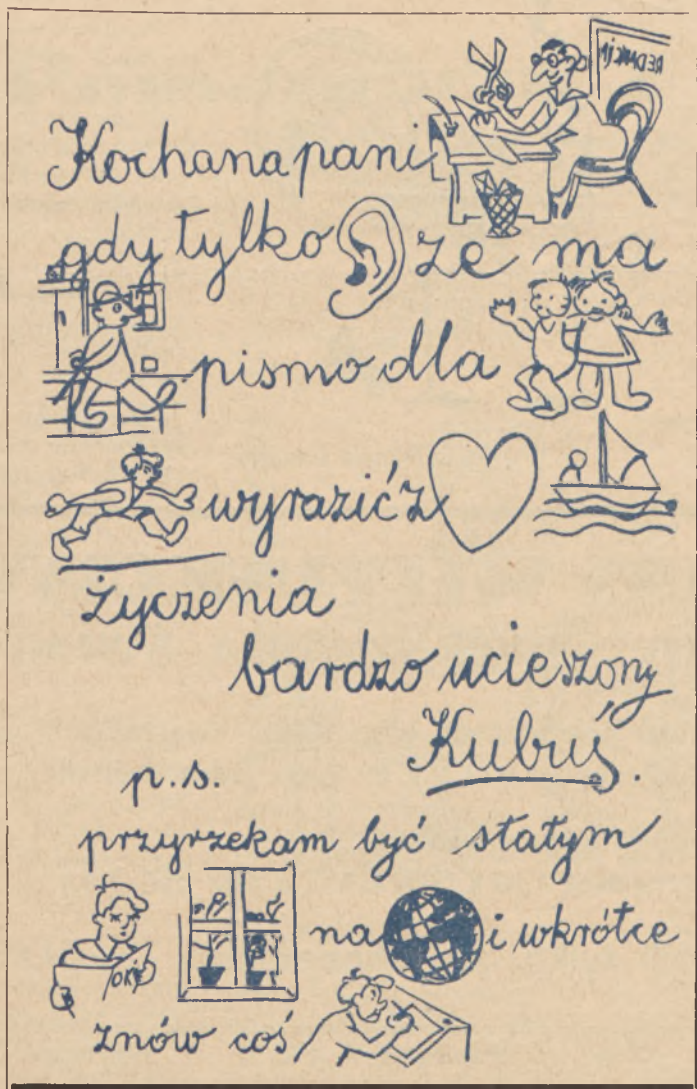 REDAKCJ
Kochana pani
gdy tylko ze ma
pismo dla
wyrazić z
życzenia
bardzo ucieszony
Kubuś.
p.s.
przyrzekam być stałym
na i wkrótce
znów coś